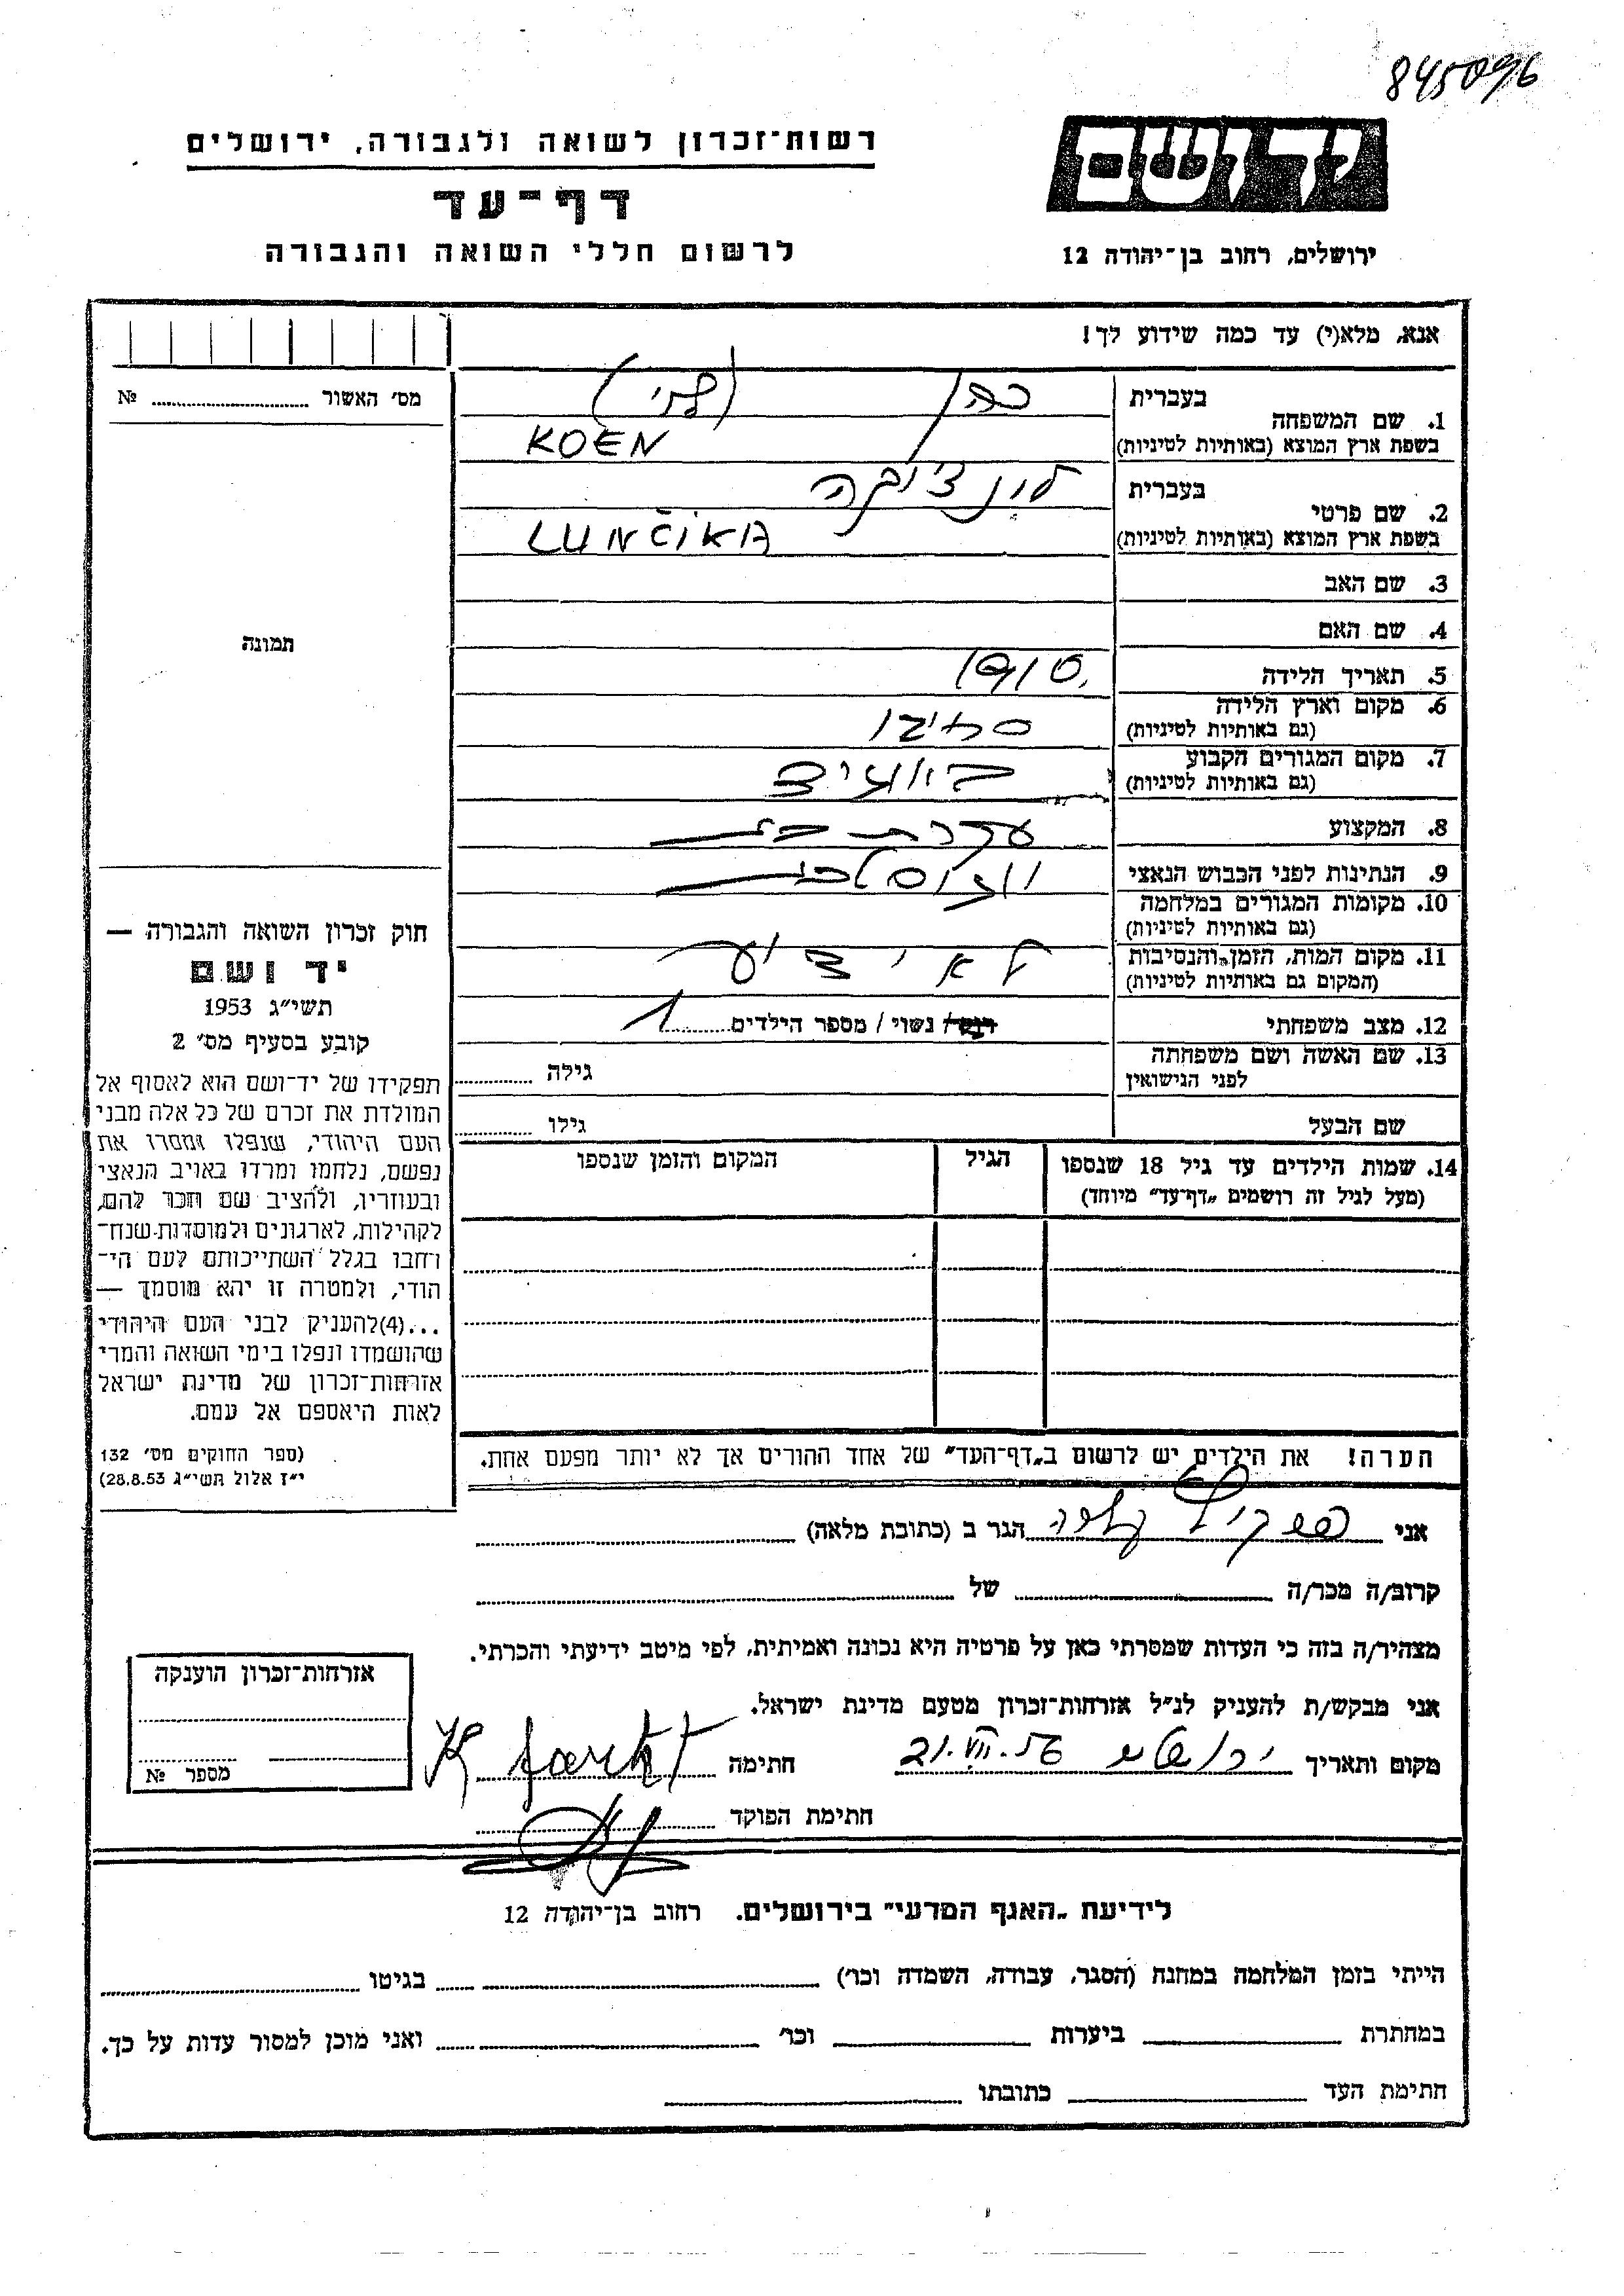 845096
רשות־זכרון לשואה ולגבורה, ירושלים
דף־עד
לרשום חללי השואה והגבורה
יד ושם
ירושלים, רחוב בן־יהודה 12
אנא, מלא(י) עד כמה שידוע לך!
מס׳ האשור № 
1. שם המשפחה
בעברית כהן
בשפת ארץ המוצא (באותיות לטיניות) KOEN
2. שם פרטי
בעברית לונצ׳יקה
בשפת ארץ המוצא (באותיות לטיניות) LUNČIKA
3. שם האב
4. שם האם
5. תאריך הלידה 1910
6. מקום וארץ הלידה
(גם באותיות לטיניות)
7. מקום המגורים הקבוע
(גם באותיות לטיניות)
8. המקצוע עקרת בית
9. הנתינות לפני הכבוש הנאצי יוגוסלבית
10. מקומות המגורים במלחמה
(גם באותיות לטיניות)
11. מקום המות, הזמן והנסיבות לא ידוע
(המקום גם באותיות לטיניות)
12. מצב משפחתי רוק/ נשוי / מספר הילדים 1
13. שם האשה ושם משפחתה גילה
לפני הנישואין
שם הבעל גילו
14. שמות הילדים עד גיל 18 שנספו הגיל המקום והזמן שנספו
(מעל לגיל זה רושמים „דף־עד" מיוחד)
תמונה
חוק זכרון השואה והגבורה —
יד ושם
תשי״ג 1953
קובע בסעיף מס׳ 2
תפקידו של יד־ושם הוא לאסוף אל
המולדת את זכרם של כל אלה מבני
העם היהודי, שנפלו ומסרו את
נפשם, נלחמו ומרדו באויב הנאצי
ובעוזריו, ולהציב שם וזכר להם,
לקהילות, לארגונים ולמוסדות שנח־
רחבו בגלל השתייכותם לעם הי־
הודי, ולמטרה זו יהא מוסמך —
...(4)להעניק לבני העם היהודי
שהושמדו ונפלו בימי השואה והמרי
אזרחות־זכרון של מדינת ישראל
לאות היאספם אל עמם.
(ספר החוקים מס׳ 132
י״ז אלול תשי״ג 28.8.53)
הערה! את הילדים יש לרשום ב„דף־העד" של אחד ההורים אך לא יותר מפעם אחת.
אני הגר ב (כתובת מלאה)
קרוב/ה מכר/ה של
מצהיר/ה בזה כי העדות שמסרתי כאן על פרטיה היא נכונה ואמיתית, לפי מיטב ידיעתי והכרתי.
אני מבקש/ת להעניק לנ״ל אזרחות־זכרון מטעם מדינת ישראל.
מקום ותאריך ירושלים 21.VII.56 חתימה
חתימת הפוקד
אזרחות־זכרון הוענקה
מספר №
לידיעת „האגף המדעי" בירושלים. רחוב בן־יהודה 12
הייתי בזמן המלחמה במחנה (הסגר, עבודה, השמדה וכו׳) בגיטו
במחתרת ביערות וכו׳ ואני מוכן למסור עדות על כך.
חתימת העד כתובתו